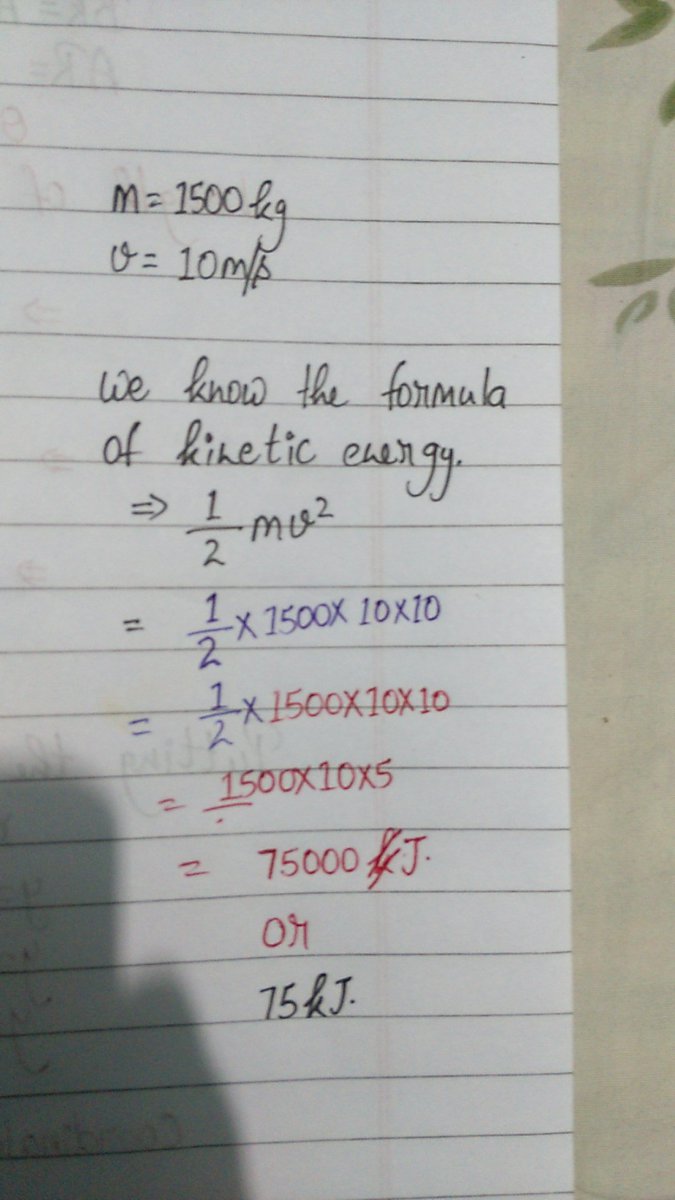 m = 1500 kg
v = 10 m/s
We know the formula
of kinetic energy.
⇒ 1/2 mv²
= 1/2 × 1500 × 10 × 10
= 1/2 × 1500 × 10 × 10
= 1500 × 10 × 5
= 75000 J.
or
75 kJ.